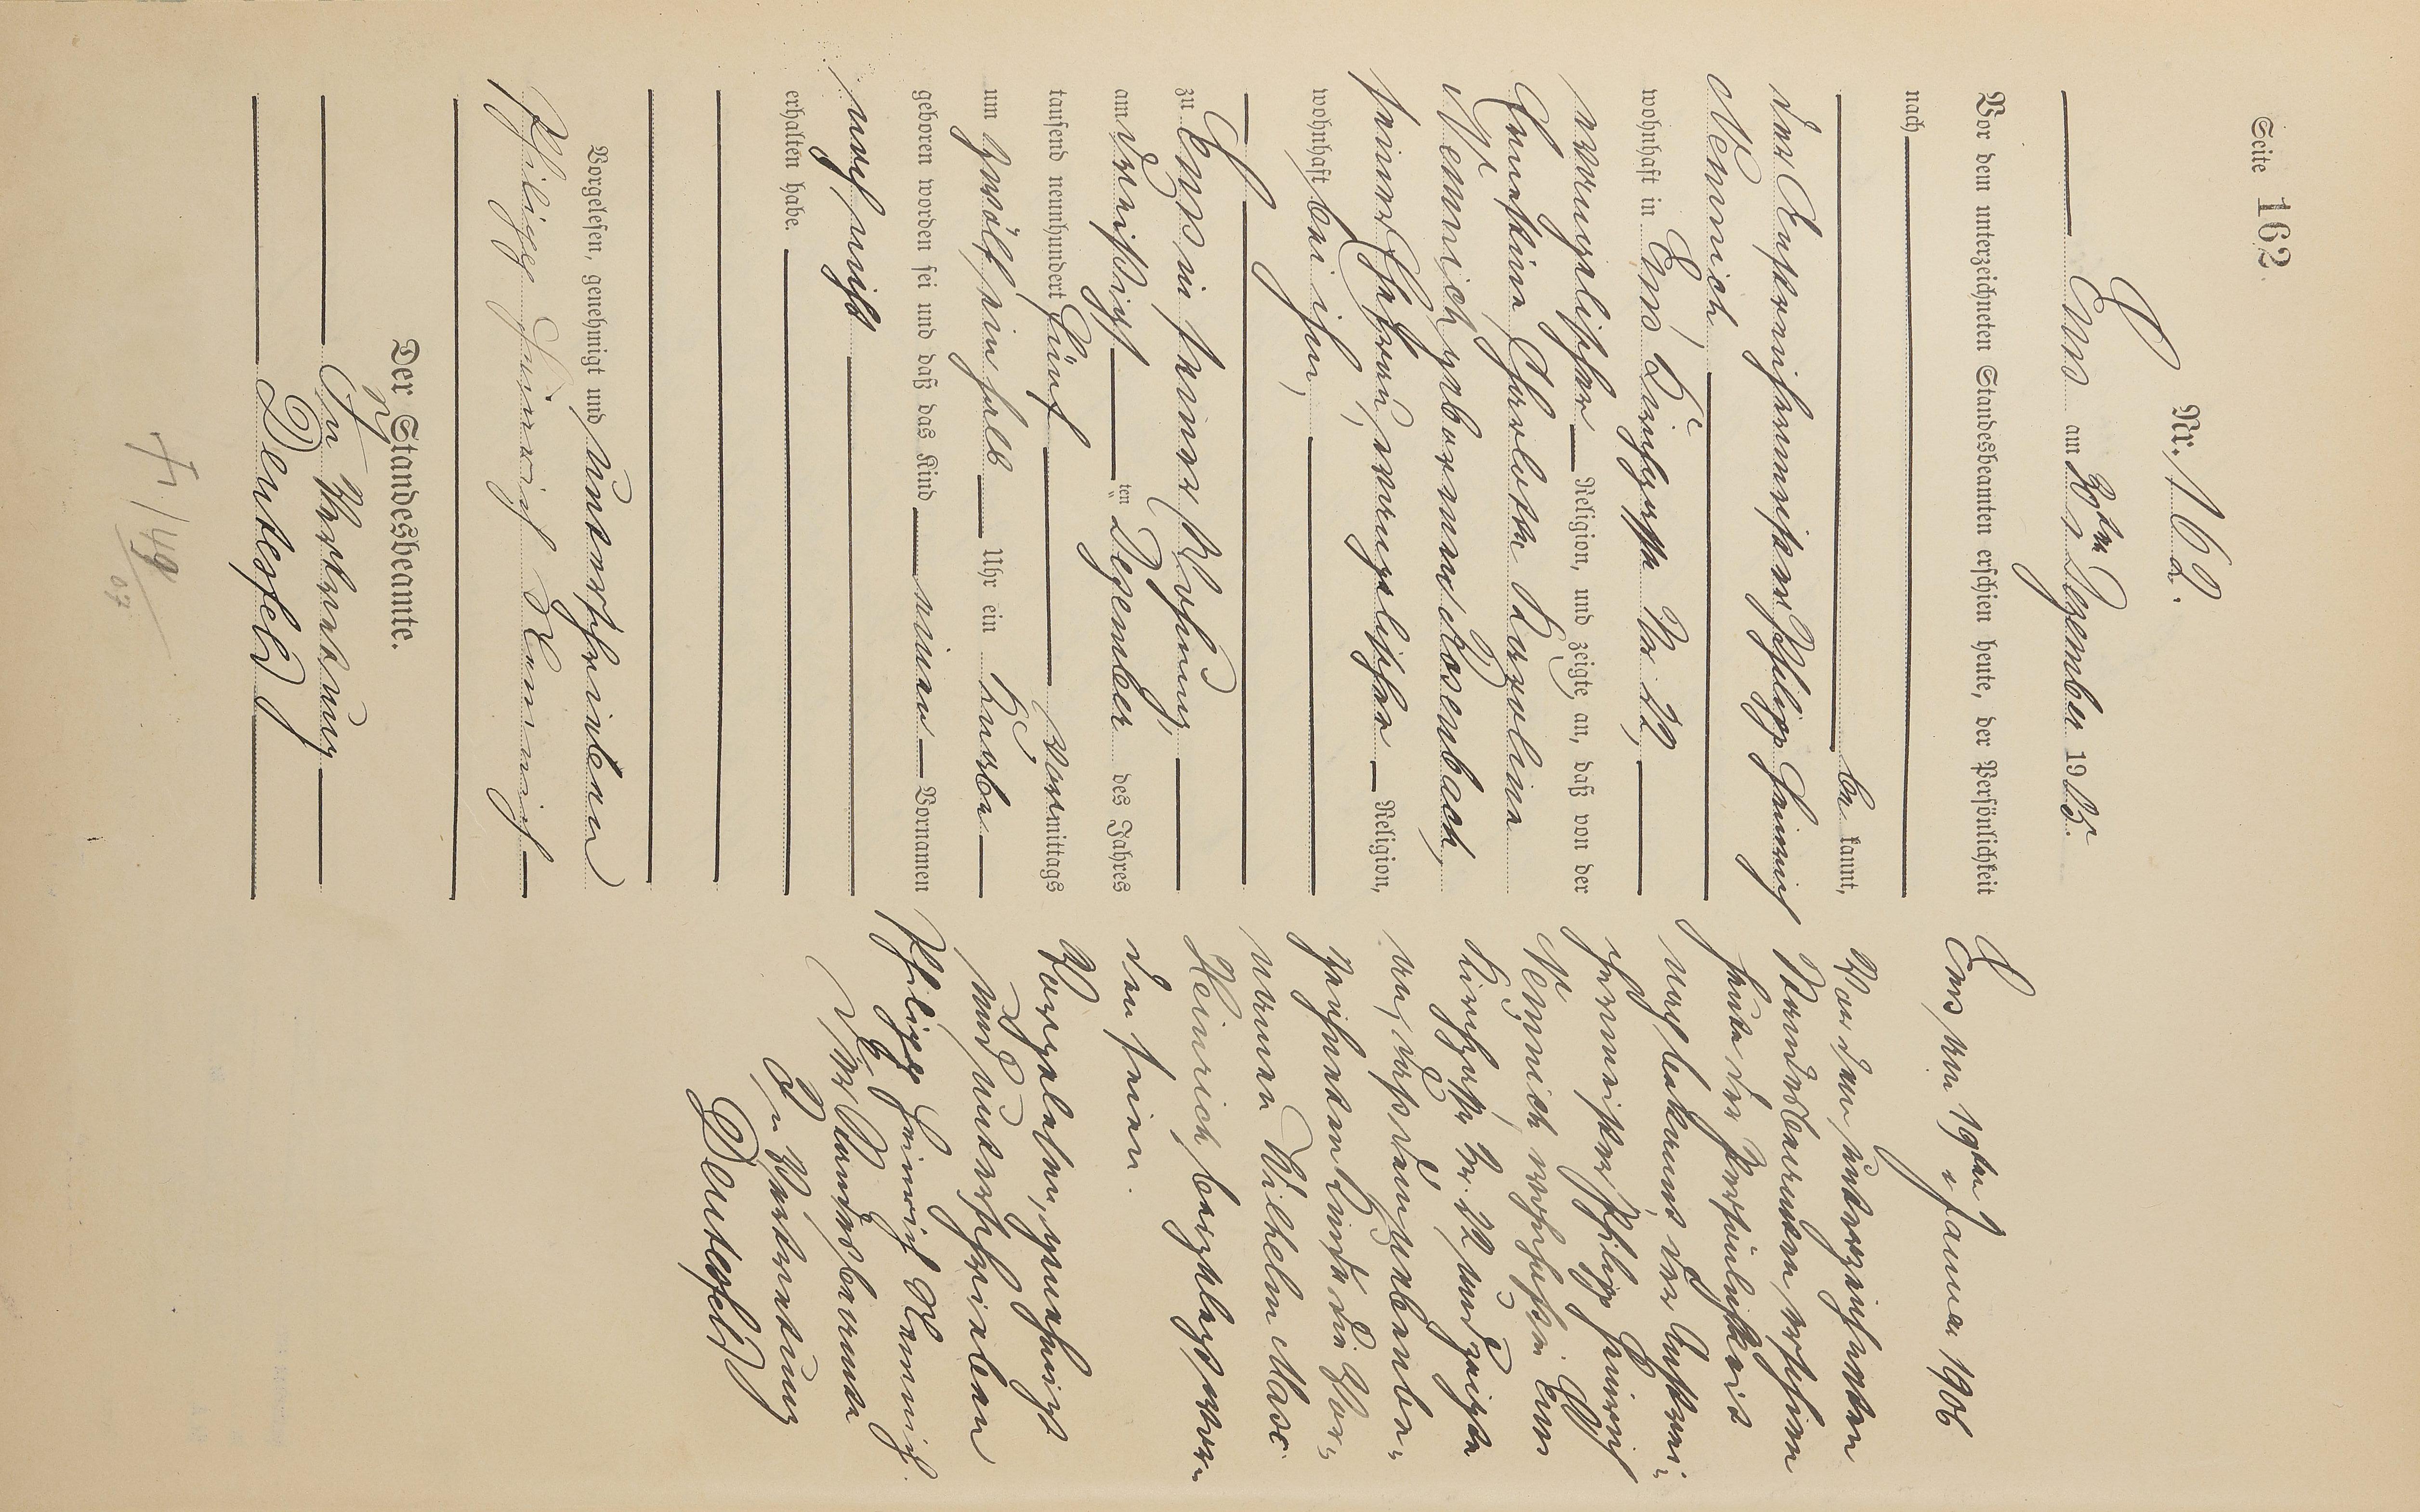 Seite 162.
Nr. 162.
Ems am 30ten Dezember 1905.
Vor dem unterzeichneten Standesbeamten erschien heute, der Persönlichkeit
nach
be kannt,
der Anstreichermeister Philipp Heinrich
Nennich
wohnhaft in Ems, Kirchgasse Nr 22,
evangelischer Religion, und zeigte an, daß von der
Ernestine Charlotte Karoline
Nennich geborenen Rosenbach,
seiner Ehefrau, evangelischer Religion,
wohnhaft bei ihm,
zu Ems in seiner Wohnung
am dreißigsten Dezember des Jahres
tausend neunhundert fünf vormittags
um zwölf ein halb Uhr ein Knabe
geboren worden sei und daß das Kind einen Vornamen
noch nicht
erhalten habe.
Vorgelesen, genehmigt und unterschrieben
Philipp Heinrich Nennich
Der Standesbeamte.
In Vertretung
Deutesfeld
Ems, den 19ten Januar 1906
Vor dem unterzeichneten
Standesbeamten erschien
heute der Persönlichkeit
nach bekannt, der Anstrei-
chermeister Philipp Heinrich
Nennich wohnhaft in Ems
Kirchgasse Nr. 22, und zeigte
an, daß dem nebenbe-
zeichneten Kinde die Vor-
namen Wilhelm Max
Heinrich beigelegt wor-
den seien.
Vorgelesen, genehmigt
und unterschrieben
Philipp Heinrich Nennich.
Der Standesbeamte
In Vertretung
Deutesfeld